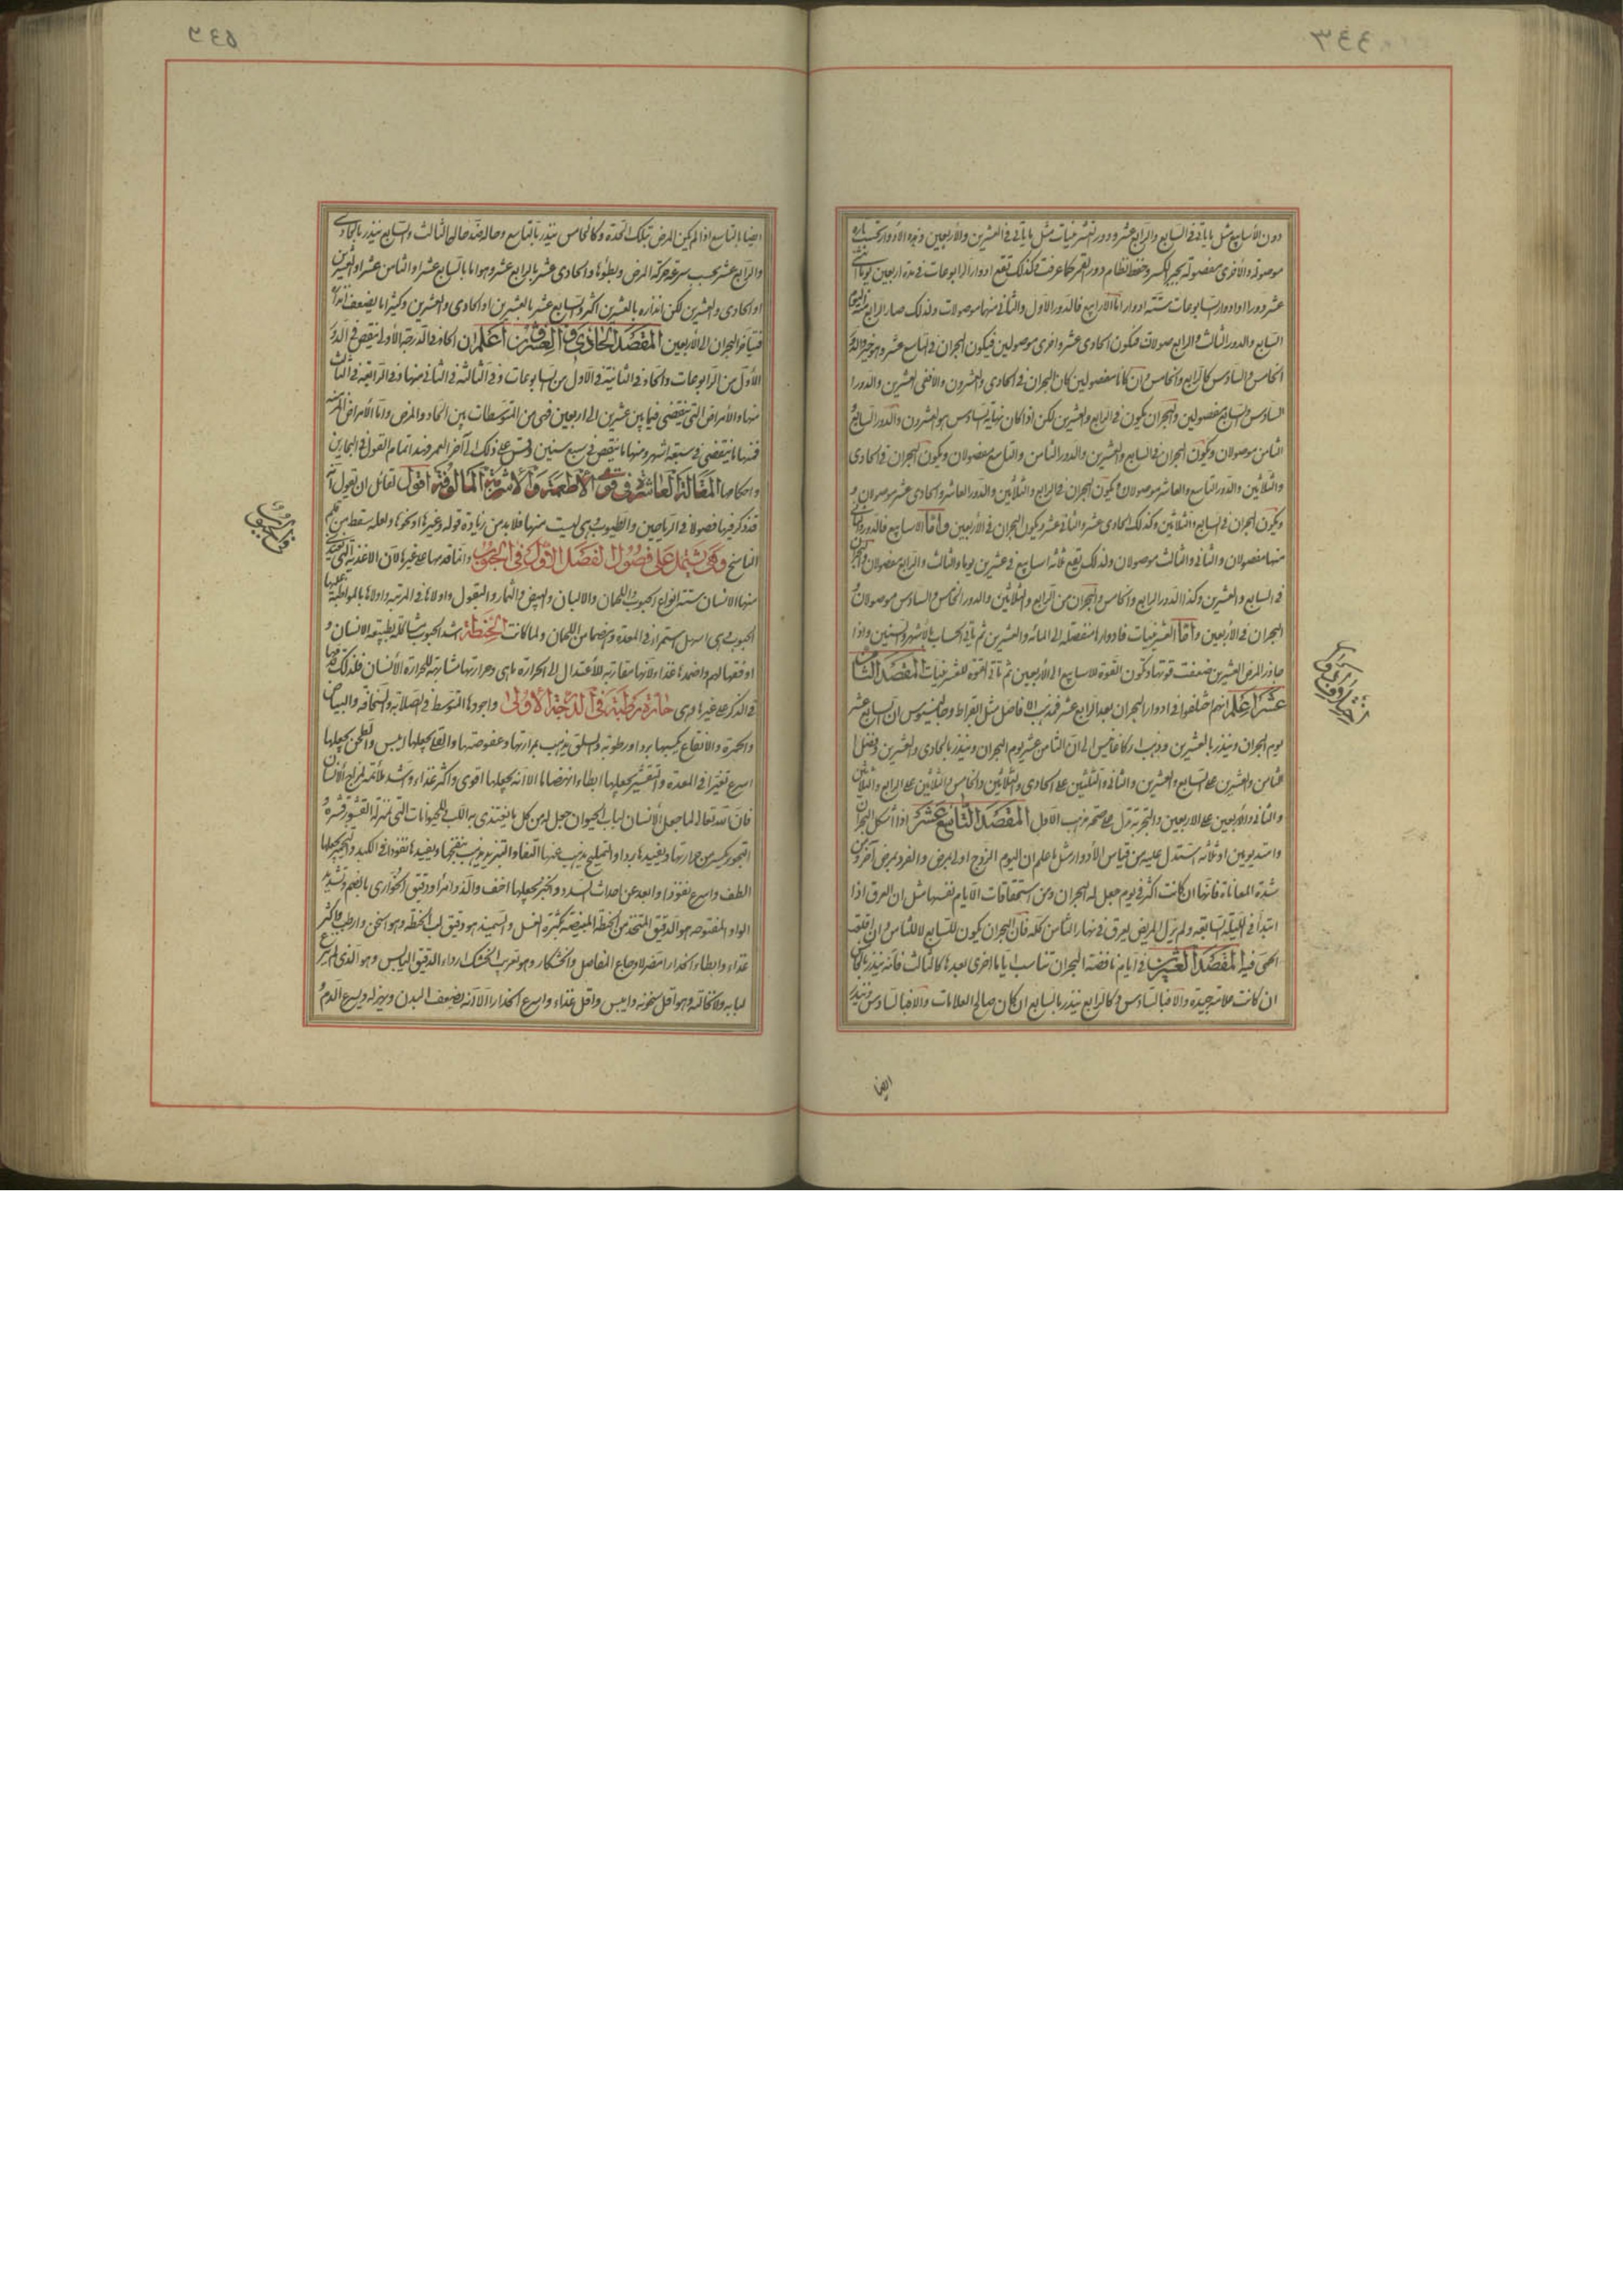 دون الأسابيع مثل ما يأتى فى السابع والرابع عشر ودور العشرينيات مثل ما ياتى فى العشرين والأربعين وهذه الأدوار بحسب تارة
موصولة والأخرى مفصولة بجبر الكسر وحفظ نظام دور القمر كما عرفت وكذلك تقع ادوار الرابوعات فى مدة اربعين يوما اثنى
عشر دورا وادوار السابوعات ستة ادوار اما الارابيع فالدور الأول والثانى منها موصولات ولذلك صار الرابع منذر اليوم
السابع والدور الثالث والرابع موصولات فيكون الحادى عشر واخرى موصولين فيكون البحران فى التاسع عشر وهو خير والدور
الخامس والسادس كالرابع والخامس وان كانا مفصولين كان البحران فى الحادى والعشرون والا ففى العشرين والدورا
السادس والسابع مفصولين والبحران يكون فى الرابع والعشرين لكن اذا كان نهاية السادس هو العشرون والدور السابع
الثامن موصولان ويكون البحران فى السابع والعشرين والدور الثامن والتاسع مفصولان ويكون البحران فى الحادى
والثلاثين والدور التاسع والعاشر موصولان ويكون البحران فى الرابع والثلاثين والدور العاشر والحادى عشر موصولان و
ويكون البحران فى السابع والثلاثين وكذلك الحادى عشر والثانى عشر ويكون البحران فى الأربعين واما الاسابيع فالدور والثانى
منها مفصولان والثانى والثالث موصولان ولذلك تقع ثلاثة اسابيع فى عشرين يوما والثالث والرابع مفصولان والبحران
فى السابع والعشرين وكذا الدور الرابع والخامس والبحران من الرابع والثلاثين والدور الخامس والسادس موصولان
البحران فى الأربعين واما العشرينيات فادوارها منفصلة الى المائه والعشرين ثم ياتى الحساب بالأشهر والسنين واذا
جاوز المرض العشرين ضعفت قوتها وتكون القوة للاسابيع الى الأربعين ثم تاتى القوة للعشرينيات المقصد الثامن
عشر اعلم انهم اختلفوا فى ادوار البحران بعد الرابع عشر فذهب الافاضل مثل ابقراط وجالينوس ان السابع عشر
يوم البحران وينذر بالعشرين وذهب اركاغانيس الى ان الثامن عشر يوم البحران وينذر بالحادى والعشرين وفضل
الثامن والعشرين على السابع والعشرين والثانى والثلثين على الحادى والثلاثين والخامس والثلاثين على الرابع والثلاثين
والثانى والأربعين على الاربعين والتجربة تدل على صحة مذهب الاول المقصد التاسع عشر اذا اشكل البحران
وامتد يومين او ثلاثه استدل عليه من قياس الأدوار مثل ما علم ان اليوم الزوج اولى بمرض والفرد بمرض آخر ومن
شدة المعاناة فانها ان كانت اكثر فى يوم جعل له البحران ومن استحقاقات الايام نفسها مثل ان العرق اذا
ابتدأ فى الليلة السابعه ولم يزل المريض يعرق فى نهار الثامن كله فان البحران يكون للسابع لا للثامن وان اقلعت
الحمى فيه المقصد العشرين فى ايام ناقصة البحران تناسب اياما اخرى بعدها كالثالث فانه ينذر بالخامس
ان كانت علامة جيدة والا فبالسادس وكالرابع ينذر بالسابع ان كان صالح العلامات والا فبالسادس وينذر
ايضا
ايضا بالتاسع اذا لم يكن المرض بتلك الحدة وكالخامس ينذر بالتاسع وحاله عند حال الثالث والسابع ينذر بالحادى
والرابع عشر بحسب سرعة حركة المرض وبطؤها والحادى عشر بالرابع عشر وهو اما بالسابع عشر او الثامن عشر او العشرين
او الحادى والعشرين لكن انذاره بالعشرين اكثر والسابع عشر بالعشرين او الحادى والعشرين وكثيرا ما يضعف
فيتأخر البحران الى الأربعين المقصد الحادى والعشرون اعلم ان الحاد فى الدرجة الأولى ينقص فى الدور
الأول من الرابوعات والحاد فى الثانية فى الاول من السابوعات وفى الثالثة فى الثانى منها وفى الرابعة فى الثالث
منها والأمراض التى ينقضى فيما بين عشرين الى اربعين فهى من المتوسطات بين الحاد والمزمن واما الأمراض المزمنة
فمنها ما ينقضى فى سبعة اشهر ومنها ما ينقص فى سبع سنين وقس على ذلك الى آخر العمر فهذا تمام القول فى البحارين
واحكامها المقالة العاشرة فى قوى الأطعمة والاشربة المالوفة اقول لقائل ان يقول انه
قد ذكر فيها فصولا فى الرياحين والطيوب وهى ليست منها فلا بد من زيادة قوله وغيرها او نحوها ولعله سقط من قلم
الناسخ وهى تشتمل على فصول الفصل الاول فى الحبوب وانما قدمها على غيرها لان الاغذية التى يغتذى
منها الانسان ستة انواع الحبوب واللحمان والالبان والبيض والثمار والبقول واولاها فى المرتبة واولاها بالمواظبة عليها
الحبوب وهى اسهل استمراء فى المعدة وهضما من اللحمان ولما كانت الحنطة اشد الحبوب مشاكلة بطبيعة الانسان و
اوفقها لهم واحمدها غذاء ولانها مقاربة للأعتدال الى الحرارة ماهى وحرارتها مشابهة للحرارة الأنسان فلذلك قدمها
فى الذكر على غيرها وهى حارة رطبة فى الدرجة الاولى واجودها المتوسط فى الصلابة والسخافه والبياض
والحمرة والانقاع يكسبها بردا ورطوبة والسلق يذهب بمرارتها وعفوصتها والقلى يجعلها ايبس والطحن يجعلها
اسرع تغيرا فى المعدة والتقشير يجعلها ابطاء انهضاما الا انه يجعلها اقوى واكثر غذاء واشد ملائمة لمزاج الأنسان
فان الله تعالى لما جعل الأنسان لباب الحيوان جعل له من كل ما يغتذى به اللب والحيوانات التى بمنزلة القشور قشره
الطف واسرع نفوذا وابعد عن احداث السدد والخبز يجعلها اخف والذ وامرأ ودقيق الحوارى بالضم وتشديد
الواو المفتوحه هو الدقيق المتخذ من الحنطة المبيضة بكثرة الغسل والسميذ هو دقيق لب الحنطة وهو اسخن وارطب واكثر
غذاء وابطاء انحدارا مضر لاوجاع المفاصل والخشكار وهو معرب الخشك ارد اى الدقيق اليابس وهو الذى لم ينزع
لبابه ولا نخالته وهو اقل سخونه وايبس واقل غذاء واسرع انحدارا الا انه يضعف البدن ويهزله ويسرع الدم